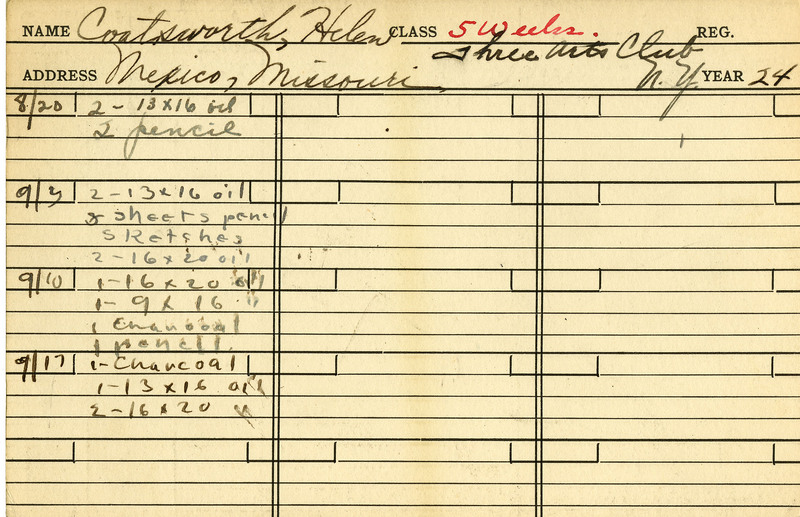 NAME Coatsworth, Helen CLASS 5 Weeks. REG.
Three Arts Club
ADDRESS Mexico, Missouri, N.Y. YEAR 24
8/20 2-13x16 oil
2 pencil
9/3 2-13x16 oil
sheets pencil
sketches
2-16x20 oil
9/10 1-16x20 oil
1-9x16 "
1 Charcoal
1 pencil
9/17 1-Charcoal
1-13x16 oil
2-16x20 "